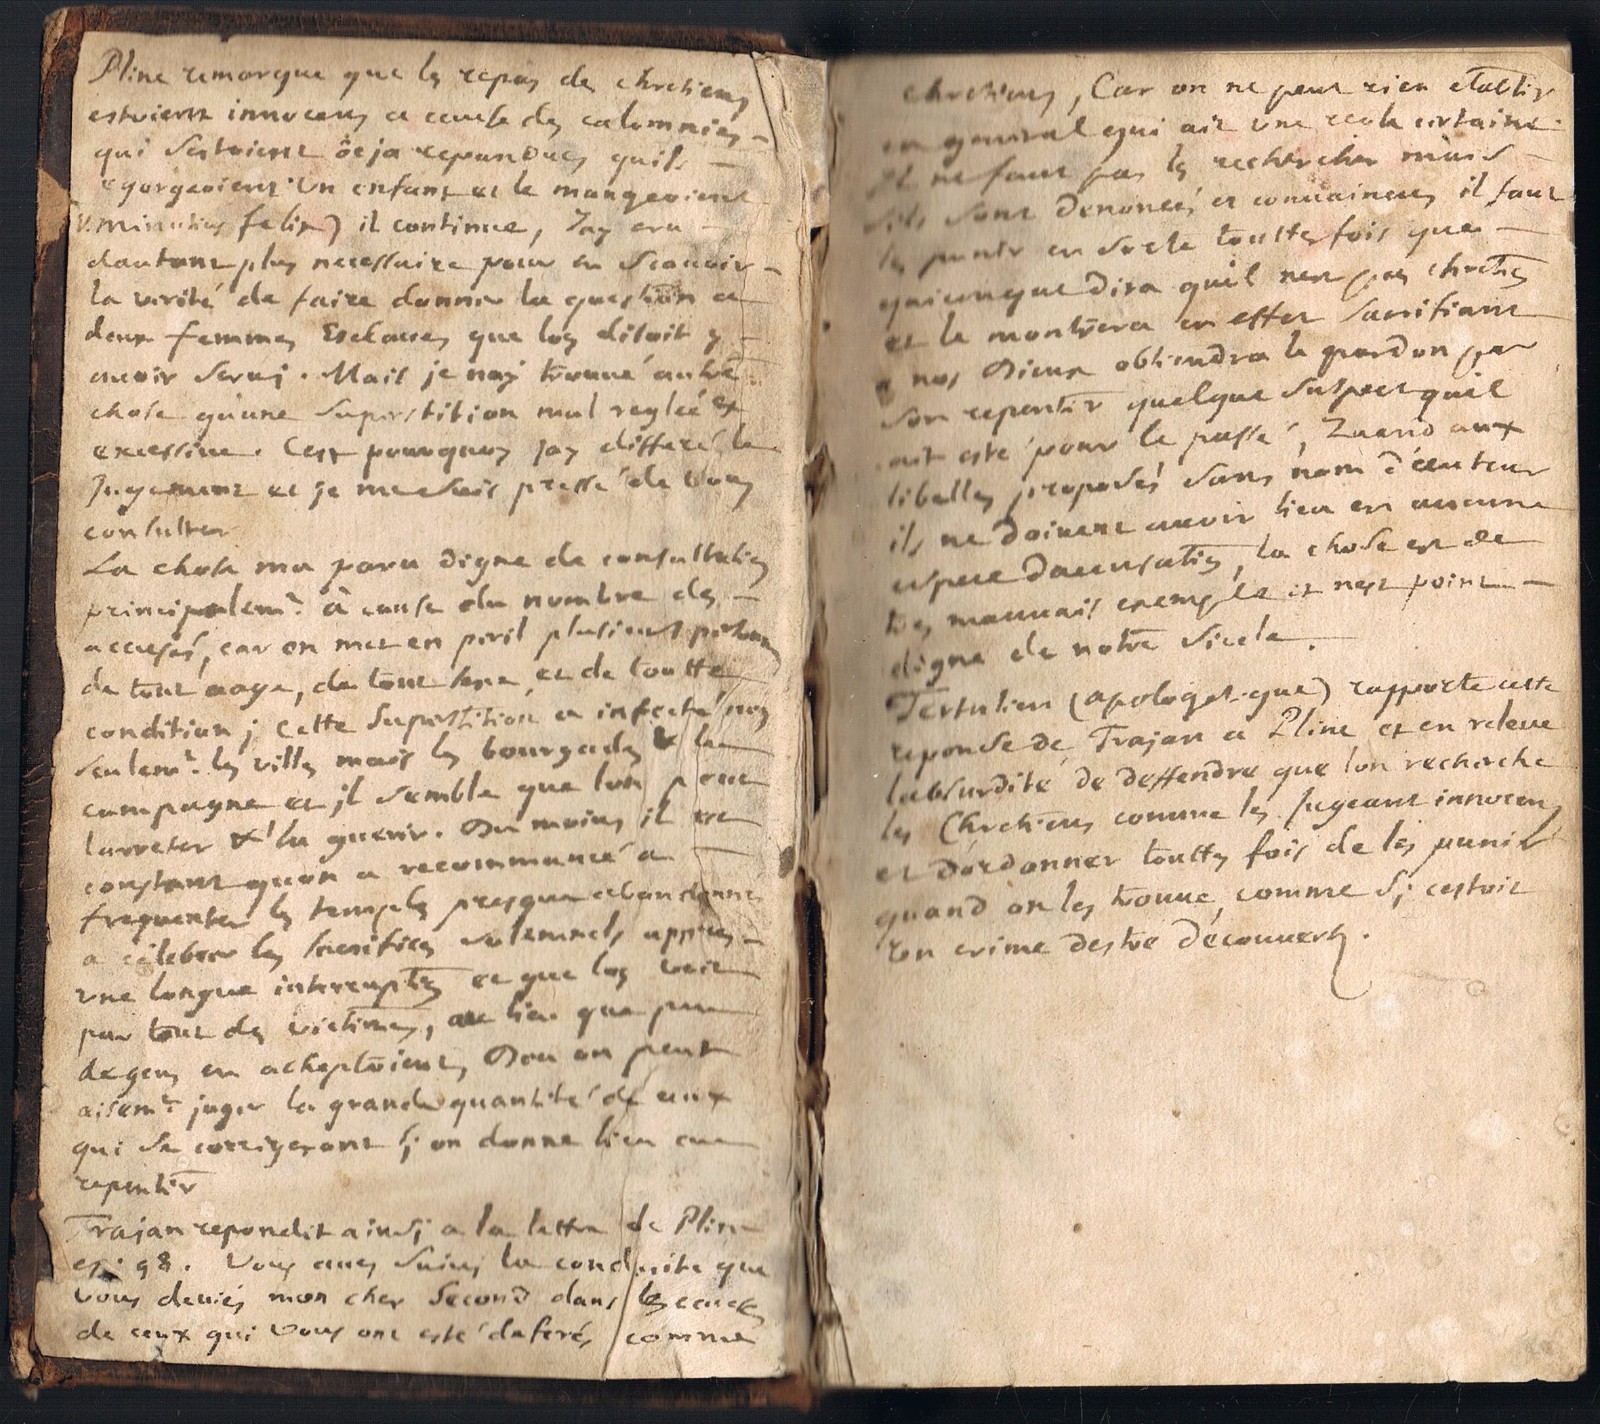 Pline remarque que les repas des chretiens
estoient innocens a cause des calomnies
qui sestoient deja repandues quils
egorgeoient un enfant et le mangeoient
(v. Minutius felix) il continue, Jay cru
dautant plus necessaire pour en scavoir
la verité de faire donner la question a
deux femmes Esclaves que lon disoit y
avoir servi. Mais je nay trouvé autre
chose qu'une superstition mal regleé et
excessive. Cest pourquoy jay differé le
Jugement et je me suis pressé de vous
consulter
La chose ma paru digne de consultation
principalemt. à cause du nombre des
accusés, car on met en peril plusieurs personnes
de tout aage, de tout sexe, et de toutte
condition; cette superstition a infecté non
seulemt. les villes mais les bourgades & la
campagne et jl semble que lon peut
larreter & la guerir. Du moins il est
constant quon a recommancé a
frequenter les temples presque abandonnes
a celebrer les sacrifices solemnels appres
une longue interruption et que lon voit
par tout des victimes, au lieu que peu
de gens en acheptoient, Dou on peut
aisemt. juger la grande quantité de ceux
qui se corrigeront sj on donne lieu au
repentir
Trajan repondit ainsj a la lettre de Pline
ep. 98. Vous aves suivi la conduite que
vous deviés mon cher Second dans les causes
de ceux qui vous ont esté deferés comme
chretiens, Car on ne peut rien etablir
en general qui ait une regle certaine.
Il ne faut pas les rechercher mais
sils sont denoncés et convaincus il faut
les punir en sorte touttes fois que
quiconque dira quil nest pas chretien
et le montrera en effet sacrifiant
a nos Dieux obtiendra le pardon par
son repentir quelque suspect quil
ait esté pour le passé, Quand aux
libelles proposés sans nom d'auteur
ils ne doivent avoir lieu en aucune
espece daccusation, la chose est de
tres mauvais exemple et nest point
digne de notre siecle.
Tertulien (apologetique) rapporte cette
reponse de Trajan a Pline et en releve
labsurdité de deffendre que lon recherche
les Chretiens comme les jugeant innocens
et dordonner touttes fois de les punir
quand on les trouve, comme sj cestoit
un crime destre decouvert.